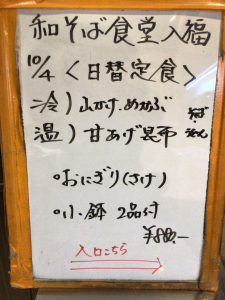 和そば食堂入福
10/4〈日替定食〉
冷）山かけ.めかぶ そば・うどん
温）甘あげ昆布
◦おにぎり（さけ）
◦小鉢 2品付
¥880.-
入口こちら